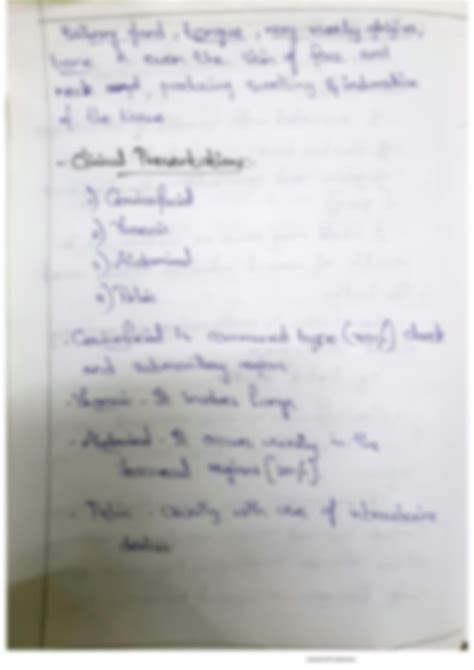 Salivary gland, tongue, very rarely
bone & even the skin of face and
neck, producing swelling & induration
of the tissue
- Clinical Presentation:-
1) Cervicofacial
2) Thoracic
3) Abdominal
4) Pelvic
- Cervicofacial is commonest type cheek
and submaxillary region
- Thoracic - It involves lungs
- Abdominal - It occurs usually in the
ileocaecal region
- Pelvic - Usually with use of intrauterine
devices